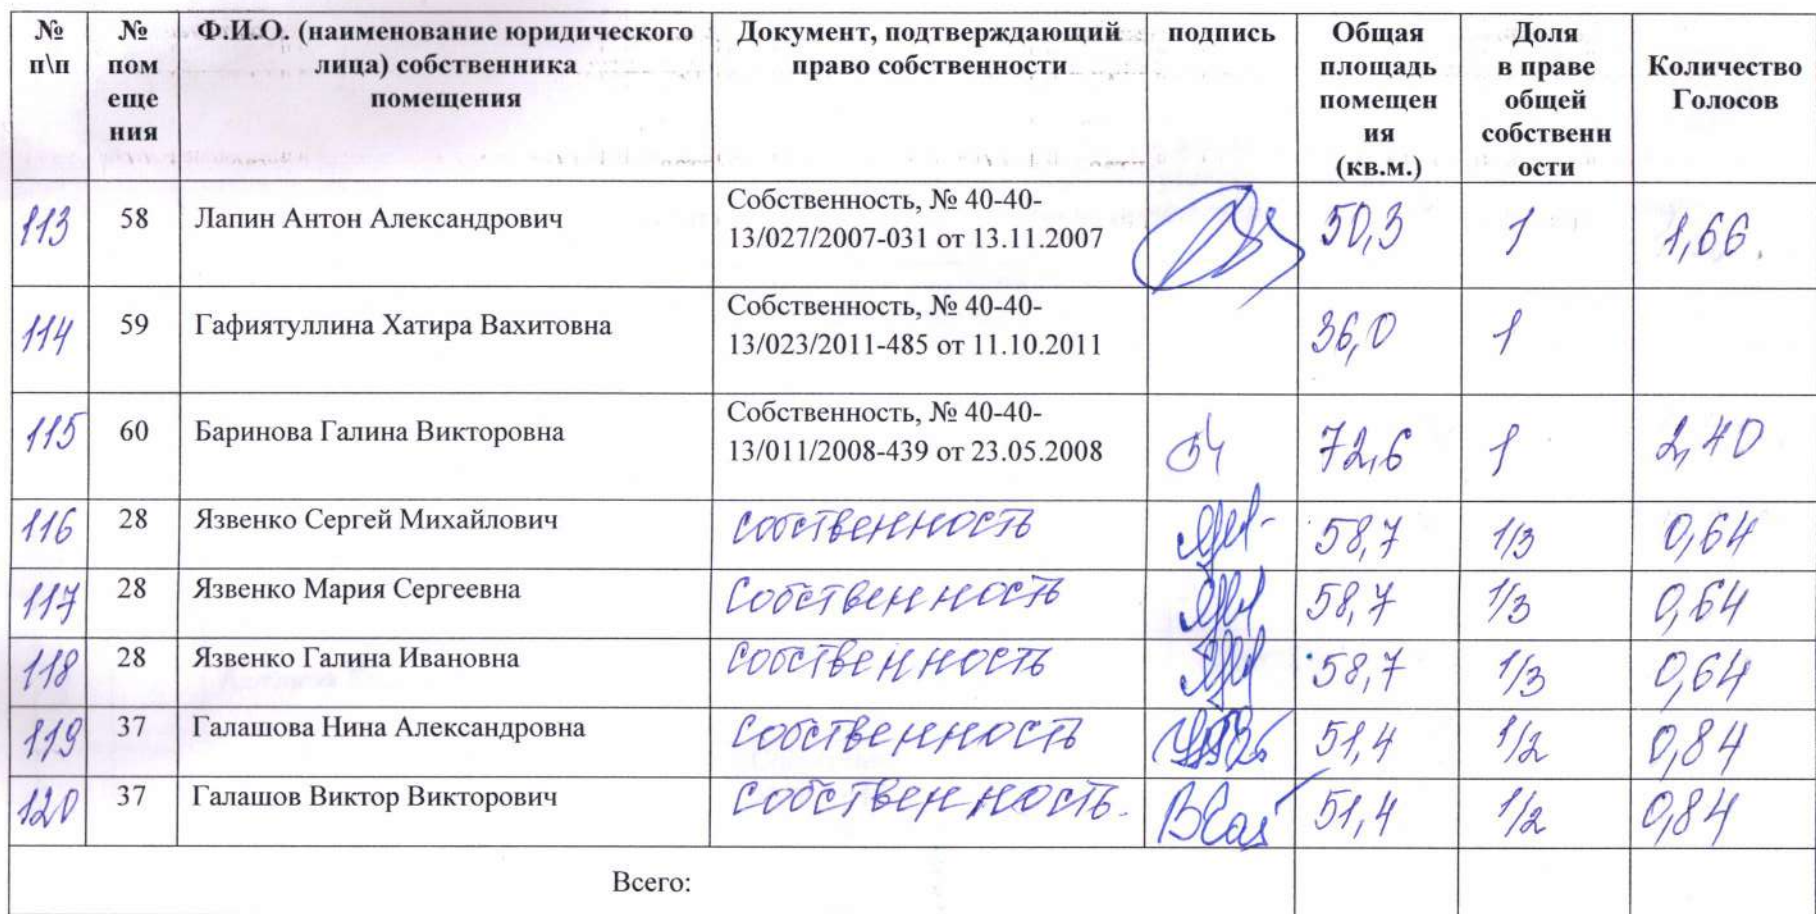 № п\п
№ пом еще ния
Ф.И.О. (наименование юридического лица) собственника помещения
Документ, подтверждающий право собственности
подпись
Общая площадь помещен ия (кв.м.)
Доля в праве общей собственн ости
Количество Голосов
113 58 Лапин Антон Александрович Собственность, № 40-40-
13/027/2007-031 от 13.11.2007 50,3 1 1,66.
114 59 Гафиятуллина Хатира Вахитовна Собственность, № 40-40-
13/023/2011-485 от 11.10.2011 36,0 1
115 60 Баринова Галина Викторовна Собственность, № 40-40-
13/011/2008-439 от 23.05.2008 72,6 1 2,40
116 28 Язвенко Сергей Михайлович собственность 58,7 1/3 0,64
117 28 Язвенко Мария Сергеевна Собственность 58,7 1/3 0,64
118 28 Язвенко Галина Ивановна собственность 58,7 1/3 0,64
119 37 Галашова Нина Александровна собственность 51,4 1/2 0,84
120 37 Галашов Виктор Викторович собственность. 51,4 1/2 0,84
Всего: